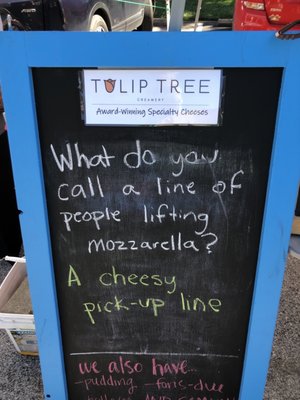 TULIP TREE
CREAMERY
Award-Winning Specialty Cheeses
What do you
call a line of
people lifting
mozzarella?
A cheesy
pick-up line
we also have...
-pudding -foris-due